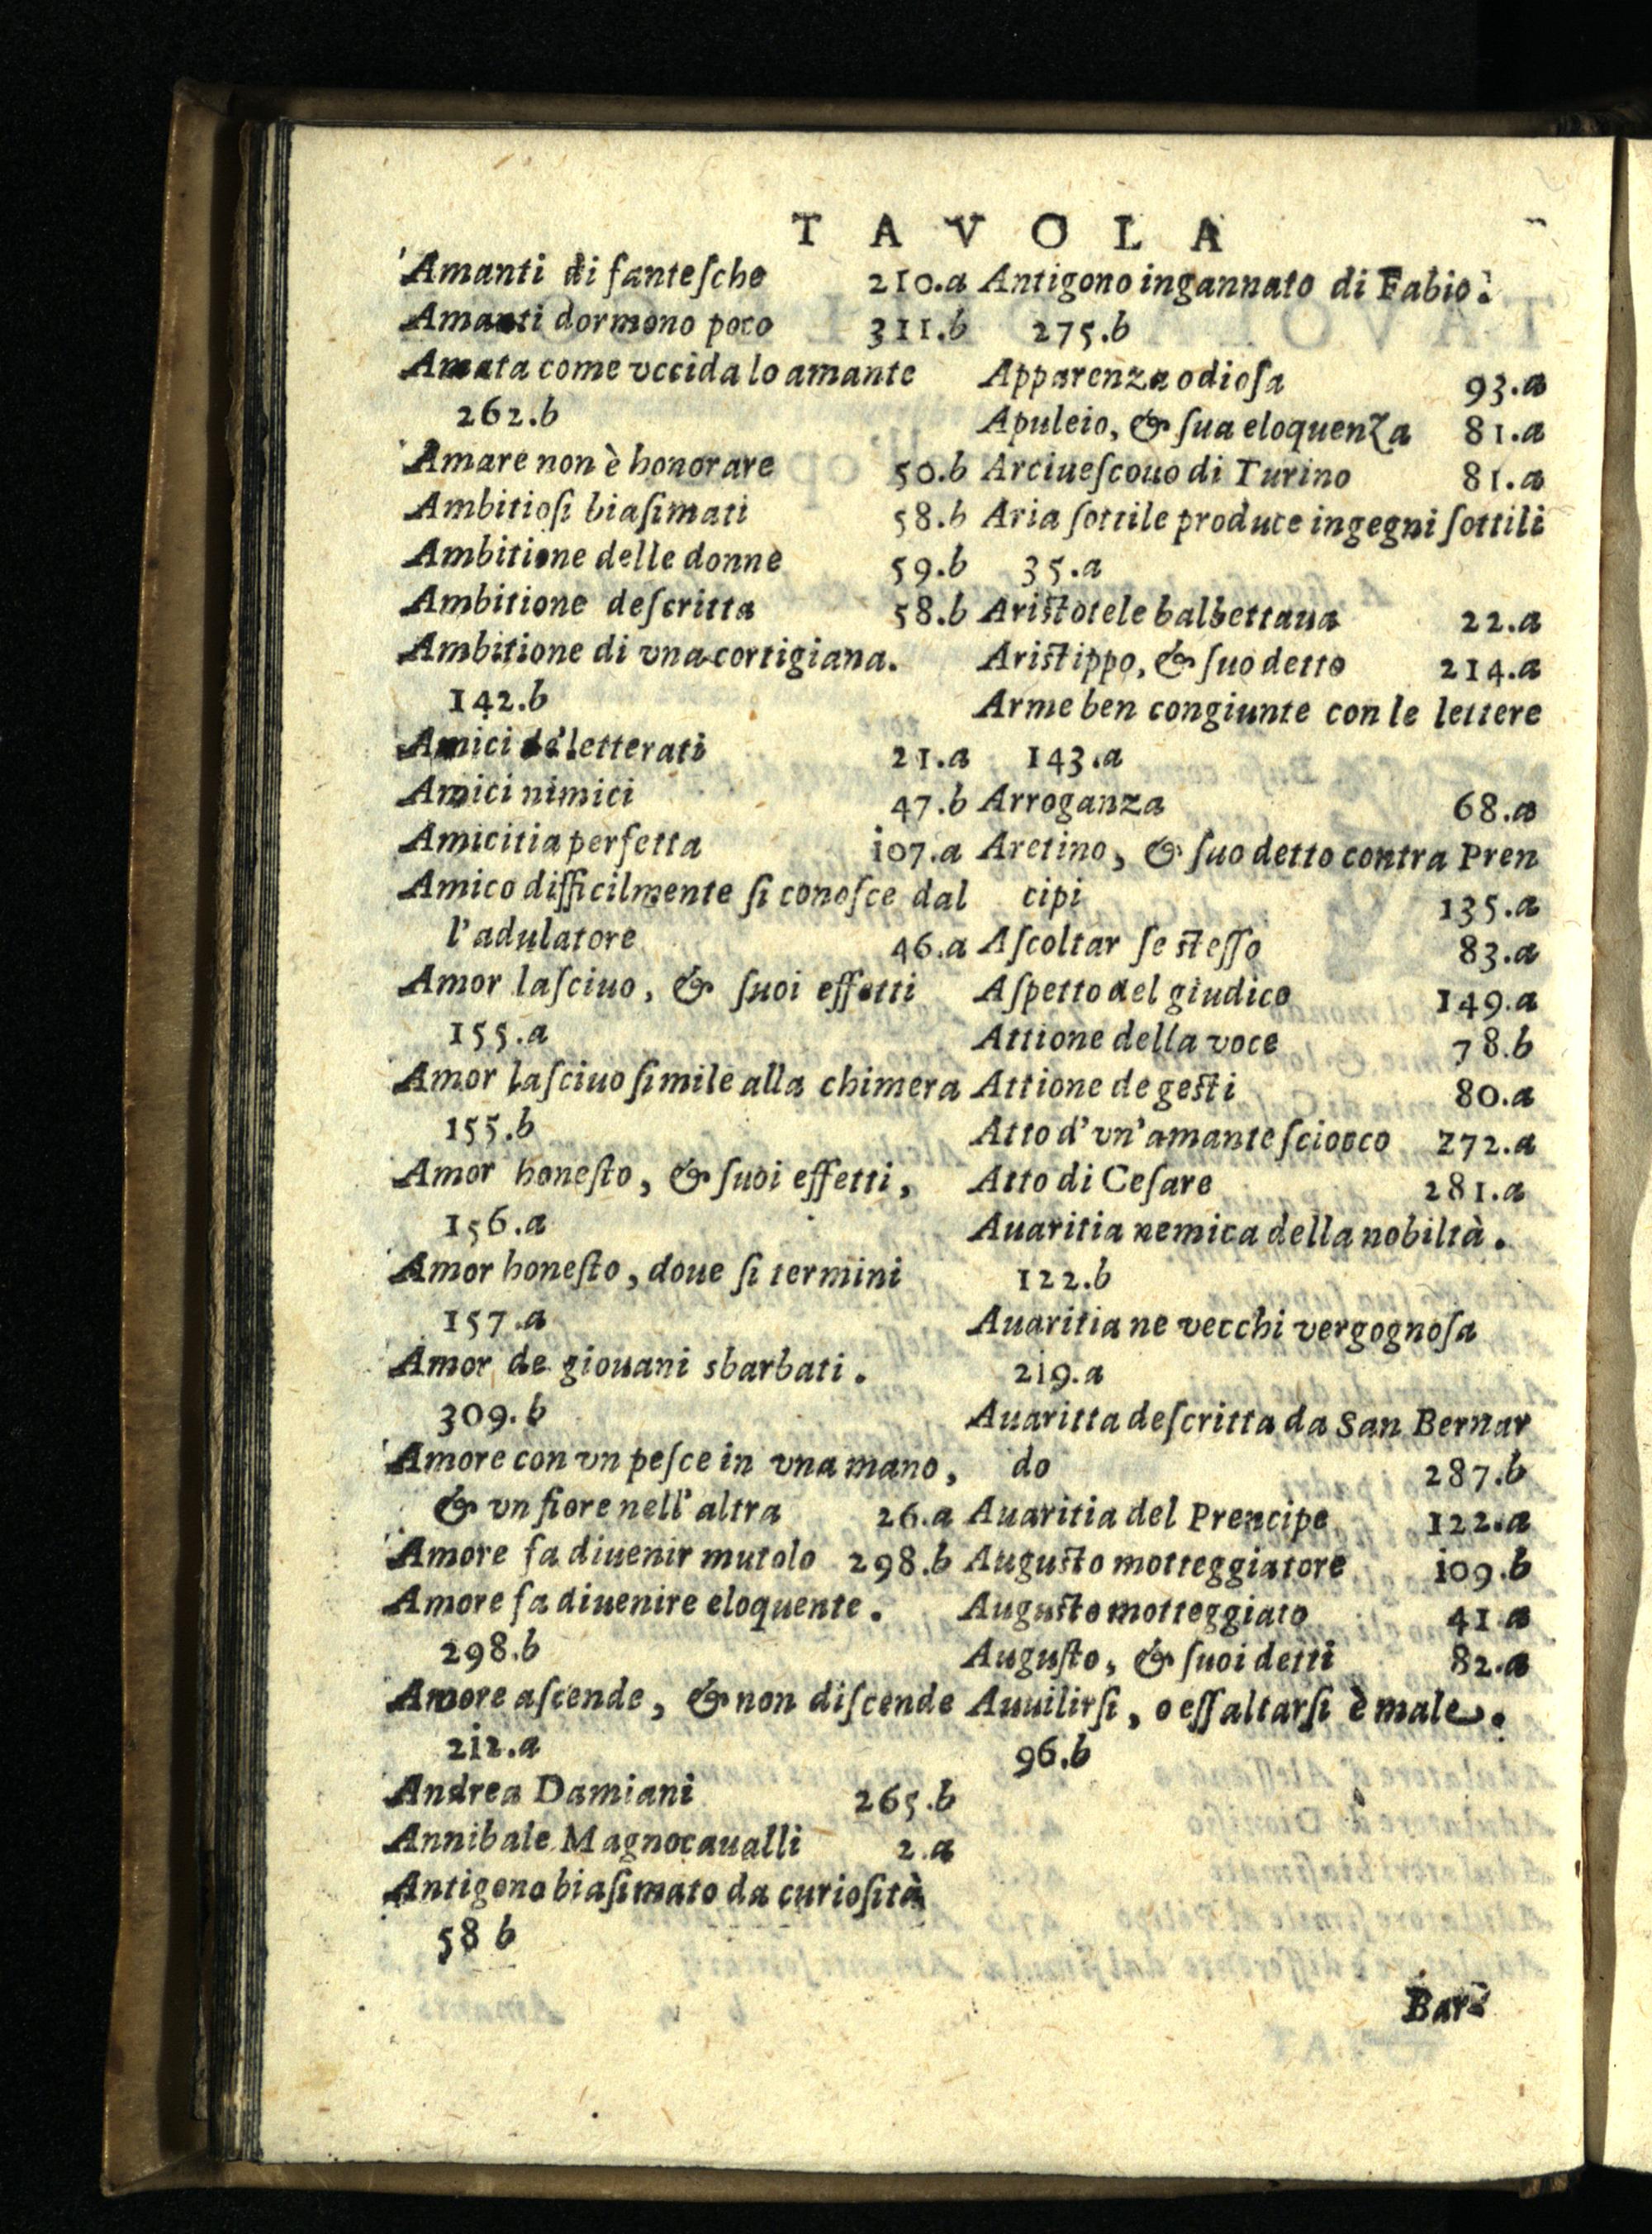 TAVOLA
Amanti di fanteſche 210.a
Amanti dormono poco 311.b
Amata come vccida lo amante
262.b
Amare non è honorare 50.b
Ambitioſi biaſimati 58.b
Ambitione delle donne 59.b
Ambitione deſcritta 58.b
Ambitione di vna cortigiana.
142.b
Amici de' letterati 21.a
Amici nimici 47.b
Amicitia perfetta 107.a
Amico difficilmente ſi conoſce dal
l'adulatore 46.a
Amor laſciuo, & ſuoi effetti
155.a
Amor laſciuo ſimile alla chimera
155.b
Amor honeſto, & ſuoi effetti,
156.a
Amor honeſto, doue ſi termini
157.a
Amor de giouani sbarbati.
309.b
Amore con vn peſce in vna mano,
& vn fiore nell'altra 26.a
Amore fa diuenir mutolo 298.b
Amore fa diuenire eloquente.
298.b
Amore aſcende, & non diſcende
212.a
Andrea Damiani 265.b
Annibale Magnocaualli 2.a
Antigono biaſimato da curioſità
58 b
Antigono ingannato di Fabio.
275.b
Apparenza odioſa 93.a
Apuleio, & ſua eloquenza 81.a
Arciueſcouo di Turino 81.a
Aria ſottile produce ingegni ſottili
35.a
Ariſtotele balbettaua 22.a
Ariſtippo, & ſuo detto 214.a
Arme ben congiunte con le lettere
143.a
Arroganza 68.a
Aretino, & ſuo detto contra Pren
cipi 135.a
Aſcoltar ſe ſteſſo 83.a
Aſpetto del giudice 149.a
Attione della voce 78.b
Attione de geſti 80.a
Atto d'vn'amante ſciocco 272.a
Atto di Ceſare 281.a
Auaritia nemica della nobiltà.
122.b
Auaritia ne vecchi vergognoſa
219.a
Auaritta deſcritta da San Bernar
do 287.b
Auaritia del Prencipe 122.a
Auguſto motteggiatore 109.b
Auguſto motteggiato 41 a
Auguſto, & ſuoi detti 82.a
Auuilirſi, o eſſaltarſi è male.
96.b
Bar-